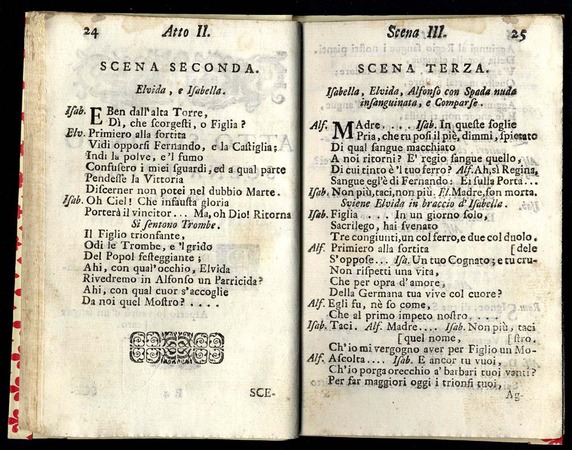 24 Atto II.
SCENA SECONDA.
Elvida, e Isabella.
Isab. E Ben dall'alta Torre,
Dì, che scorgesti, o Figlia?
Elv. Primiero alla sortita
Vidi opporsi Fernando, e la Castiglia;
Indi la polve, e 'l fumo
Confusero i miei sguardi, ed a qual parte
Pendesse la Vittoria
Discerner non potei nel dubbio Marte.
Isab. Oh Ciel! Che infausta gloria
Porterà il vincitor... Ma, oh Dio! Ritorna
Si sentono Trombe.
Il Figlio trionfante,
Odi le Trombe, e 'l grido
Del Popol festeggiante;
Ahi, con qual'occhio, Elvida
Rivedremo in Alfonso un Parricida?
Ahi, con qual cuor s'accoglie
Da noi quel Mostro? ....
SCE-
Scena III. 25
SCENA TERZA.
Isabella, Elvida, Alfonso con Spada nuda
insanguinata, e Comparse.
Alf. MAdre, .... Isab. In queste soglie
Pria, che tu posi il piè, dimmi, spietato
Di qual sangue macchiato
A noi ritorni? E' regio sangue quello,
Di cui tinto è 'l tuo ferro? Alf. Ah, sì Regina,
Sangue egl'è di Fernando: Ei sulla Porta...
Isab. Non più, taci, non più. El. Madre, son morta.
Sviene Elvida in braccio d'Isabella.
Isab. Figlia .... In un giorno solo,
Sacrilego, hai svenato
Tre congiunti, un col ferro, e due col duolo,
Alf. Primiero alla sortita [dele
S'oppose... Isa. Un tuo Cognato; e tu cru-
Non rispetti una vita,
Che per opra d'amore,
Della Germana tua vive col cuore?
Alf. Egli fu, nè so come,
Che al primo impeto nostro, ....
Isab. Taci. Alf. Madre.... Isab. Non più, taci
[quel nome, [stro.
Ch'io mi vergogno aver per Figlio un Mo-
Alf. Ascolta.... Isab. E ancor tu vuoi,
Ch'io porga orecchio a' barbari tuoi vanti?
Per far maggiori oggi i trionfi tuoi,
Ag-